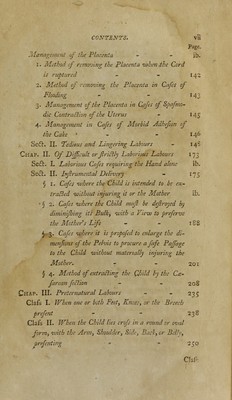 CONTENTS. vii
Page.
Management of the Placenta - - ib.
1. Method of removing the Placenta when the Cord
is ruptured - - 142
2. Method of removing the Placenta in Cases of
Flooding - - 143
3. Management of the Placenta in Cases of Spasmo-
dic Contraction of the Uterus - 145
4. Management in Cases of Morbid Adhesion of
the Cake - - 146
Sect. II. Tedious and Lingering Labours - 148
CHAP. II. Of Difficult or strictly Laborious Labours 175
Sect. I. Laborious Cases requiring the Hand alone ib.
Sect. II. Instrumental Delivery - 175
§ 1. Cases where the Child is intended to be ex-
tracted without injuring it or the Mother ib.
§ 2. Cases where the Child must be destroyed by
diminishing its Bulk, with a View to preserve
the Mother's Life - 188
§ 3. Cases where it is proposed to enlarge the di-
mensions of the Pelvis to procure a safe Passage
to the Child without materially injuring the
Mother. - - 201
§ 4. Method of extracting the Child by the Cæ-
sarean section - - 208
CHAP. III. Preternatural Labours - - 235
Class I. When one or both Feet, Knees, or the Breech
present - - 238
Class II. When the Child lies cross in a round or oval
form, with the Arm, Shoulder, Side, Back, or Belly,
presenting - - 250
Class